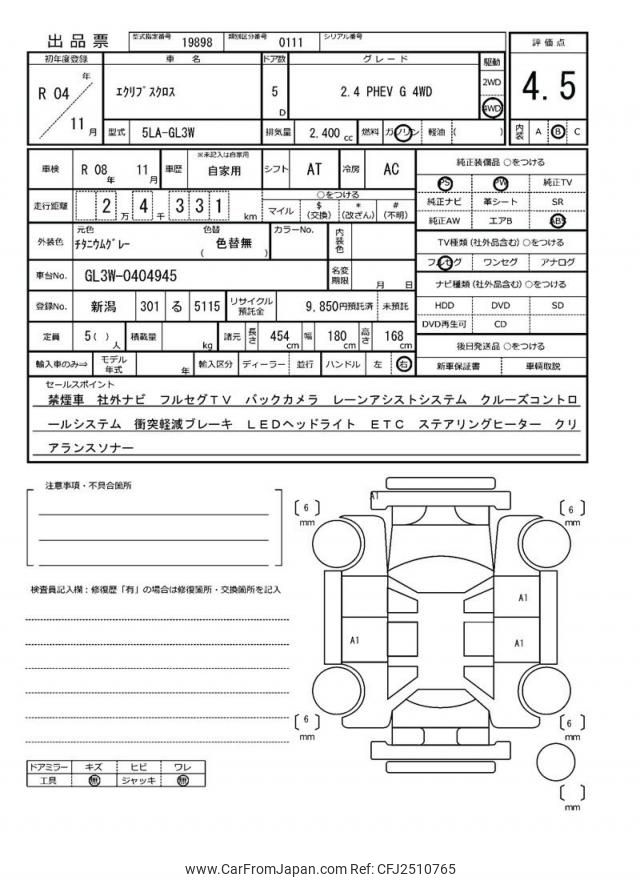 出品票 型式指定番号 19898 類別区分番号 0111 シリアル番号
初年度登録 車名 ドア数 グレード 駆動 評価点
R 04 年 エクリプスクロス 5 D 2.4 PHEV G 4WD 2WD 4WD 4.5
11 月 型式 5LA-GL3W 排気量 2,400 cc 燃料 ガソリン 軽油 ( ) 内装 A B C
車検 R 08 年 11 月 車歴 ※未記入は自家用 自家用 シフト AT 冷房 AC
走行距離 2 万 4 千 3 3 1 km ○をつける
マイル $ (交換) * (改ざん) # (不明)
外装色 元色 チタニウムグレー 色替 ( 色替無 ) カラーNo. 内装色
車台No. GL3W-0404945 名変期限 月 日
登録No. 新潟 301 る 5115 リサイクル預託金 9,850円預託済 未預託
定員 5 ( ) 人 積載量 kg 諸元 長さ 454 cm 幅 180 cm 高さ 168 cm
輸入車のみ⇒ モデル年式 年 輸入区分 ディーラー 並行 ハンドル 左 右
純正装備品 ○をつける
PS PW 純正TV
純正ナビ 革シート SR
純正AW エアB ABS
TV種類(社外品含む) ○をつける
フルセグ ワンセグ アナログ
ナビ種類(社外品含む) ○をつける
HDD DVD SD
DVD再生可 CD
後日発送品 ○をつける
新車保証書 車輌取説
セールスポイント
禁煙車 社外ナビ フルセグTV バックカメラ レーンアシストシステム クルーズコントロ
ールシステム 衝突軽減ブレーキ LEDヘッドライト ETC ステアリングヒーター クリ
アランスソナー
注意事項・不具合箇所
検査員記入欄：修復歴「有」の場合は修復箇所・交換箇所を記入
A1
6 mm
6 mm
A1
A1
A1
6 mm
6 mm
mm
ドアミラー キズ ヒビ ワレ
工具 無 ジャッキ 無
www.CarFromJapan.com Ref: CFJ2510765